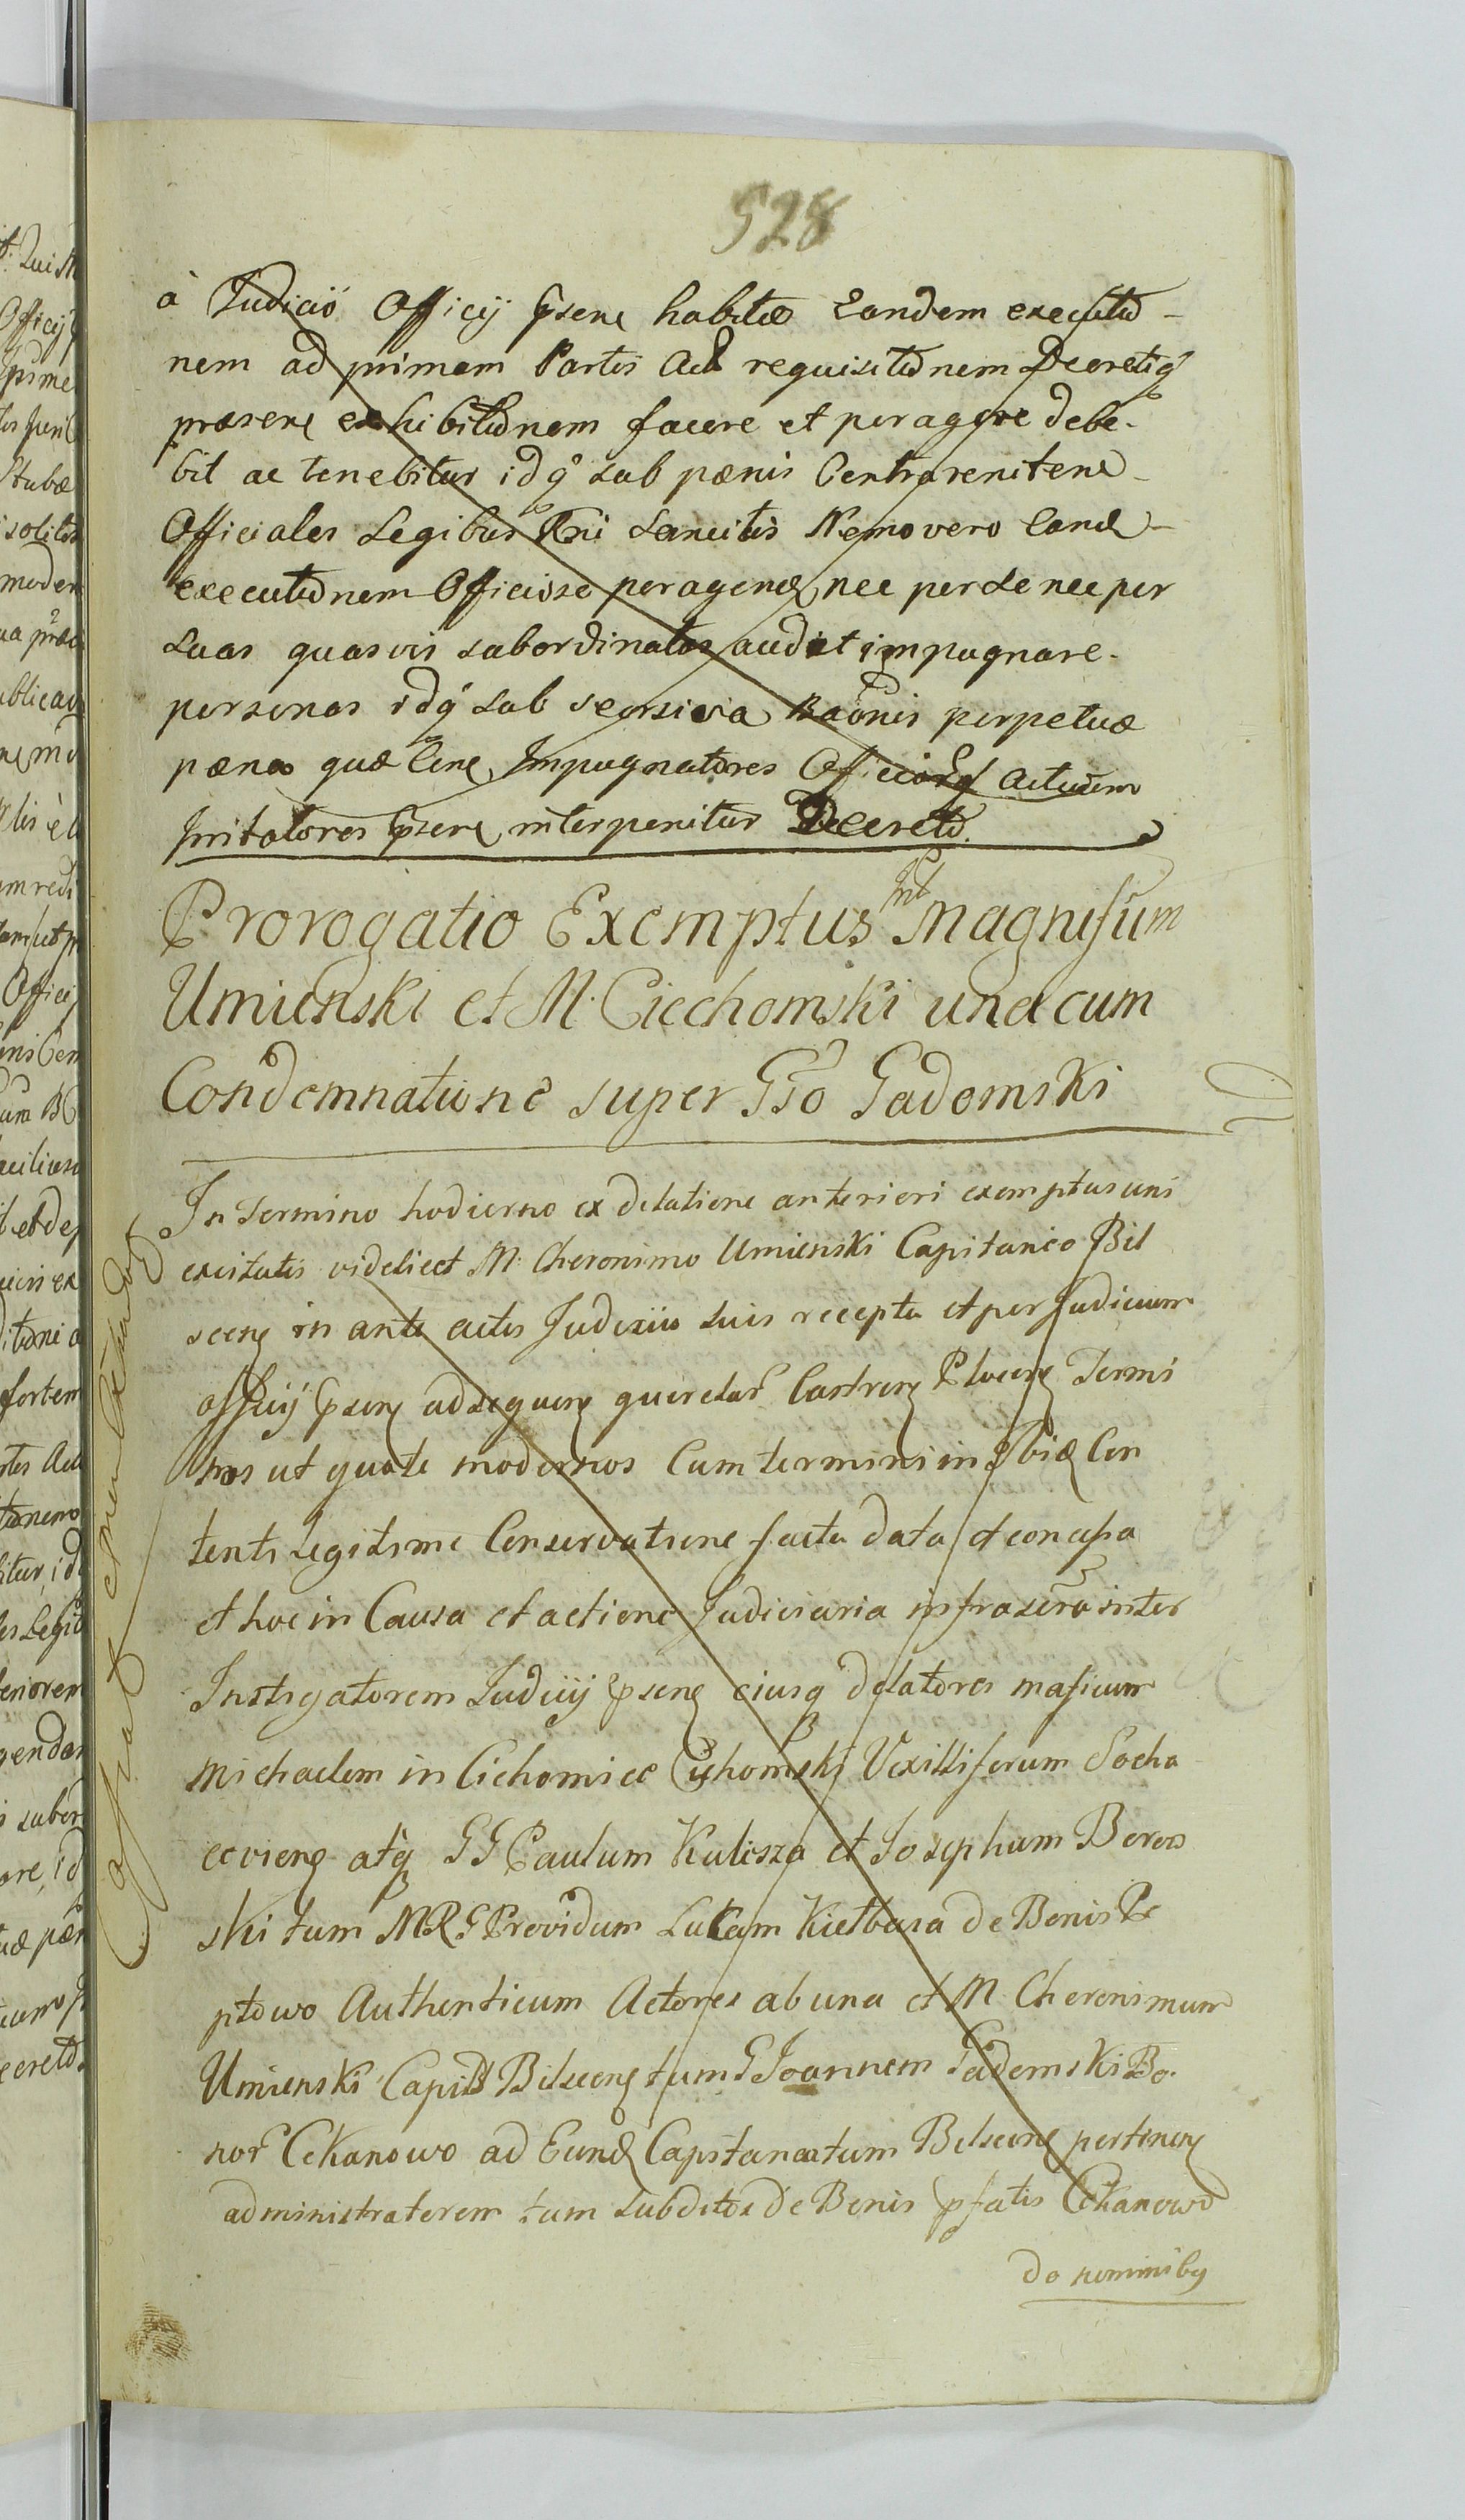 528
à Judicio Officij Psene habitæ Eandem executio-
nem ad primam Partis Act requisitionem Decretiq
præsene exhibitionem facere et peragere debe-
bit ac tenebitur idq sub pænis Contra renitene
Officiales Legibus Rni sancitis Nemo vero Eand
executionem Officiose peragend nec per se nec per
suas quasvis subordinatas audeat impugnare
personas idq sub Baonis perpetuæ
pæna quæ Impugnatores Actuum
Irritatores Psene interponitur Decreto.
Prorogatio Exemptus int Magnificum
Umienski et M. Ciechomski una cum
Condemnatione super Gso Gadomski
In Termino hodierno ex dilatione anteriori exemptus uni
excitatis videlicet M. Cheronimo Umienski Capitaneo Bil
scene in ante actis Judiciis suis recepta et per Judicium
officij Psene ad sequene querelar Castrens Plocens Termi
nos ut quote modernos Cum termini in Con
tenti legitime Conservatione facta data et concessa
et hoc in Causa et actione Judiciaria infrascro inter
Instigatorem Judicij Psene ejusq delatores maficum
Michaelem in Cichomice Cichomski Vexilliferum Socha
ccviene atq GG Paulum Kulesza et Josephum Borow
ski tum MRG Providum Lucam Kietbasa de Bonis Po
ptowo Authenticum Actores ab una et M Cheronimum
Umienski Capit Bilscene tum G Joannem Gadomski Bo
nor Cekanowo ad Eund Capitaneatum Belscene pertinene
administratorem tum subditos de Bonis pfatis Cekanowo
de nominibg